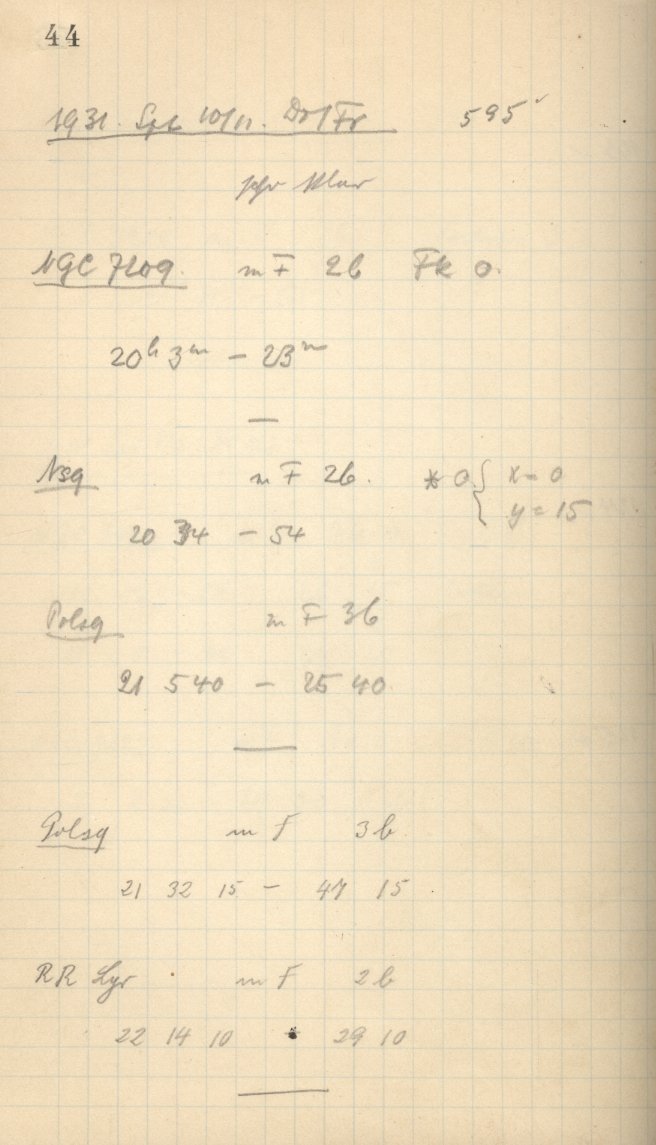 44
1931. Spt 10/11. Do/Fr 595
sehr klar
NGC 7209. m F 2b Fk 0.
20h 3m — 23m
—
Nsq m F 2b. * 0 { x = 0
y = 15
20 34 — 54
Polsq m F 3b
21 5 40 — 25 40
Polsq m F 3b.
21 32 15 — 47 15
RR Lyr m F 2b
22 14 10 29 10